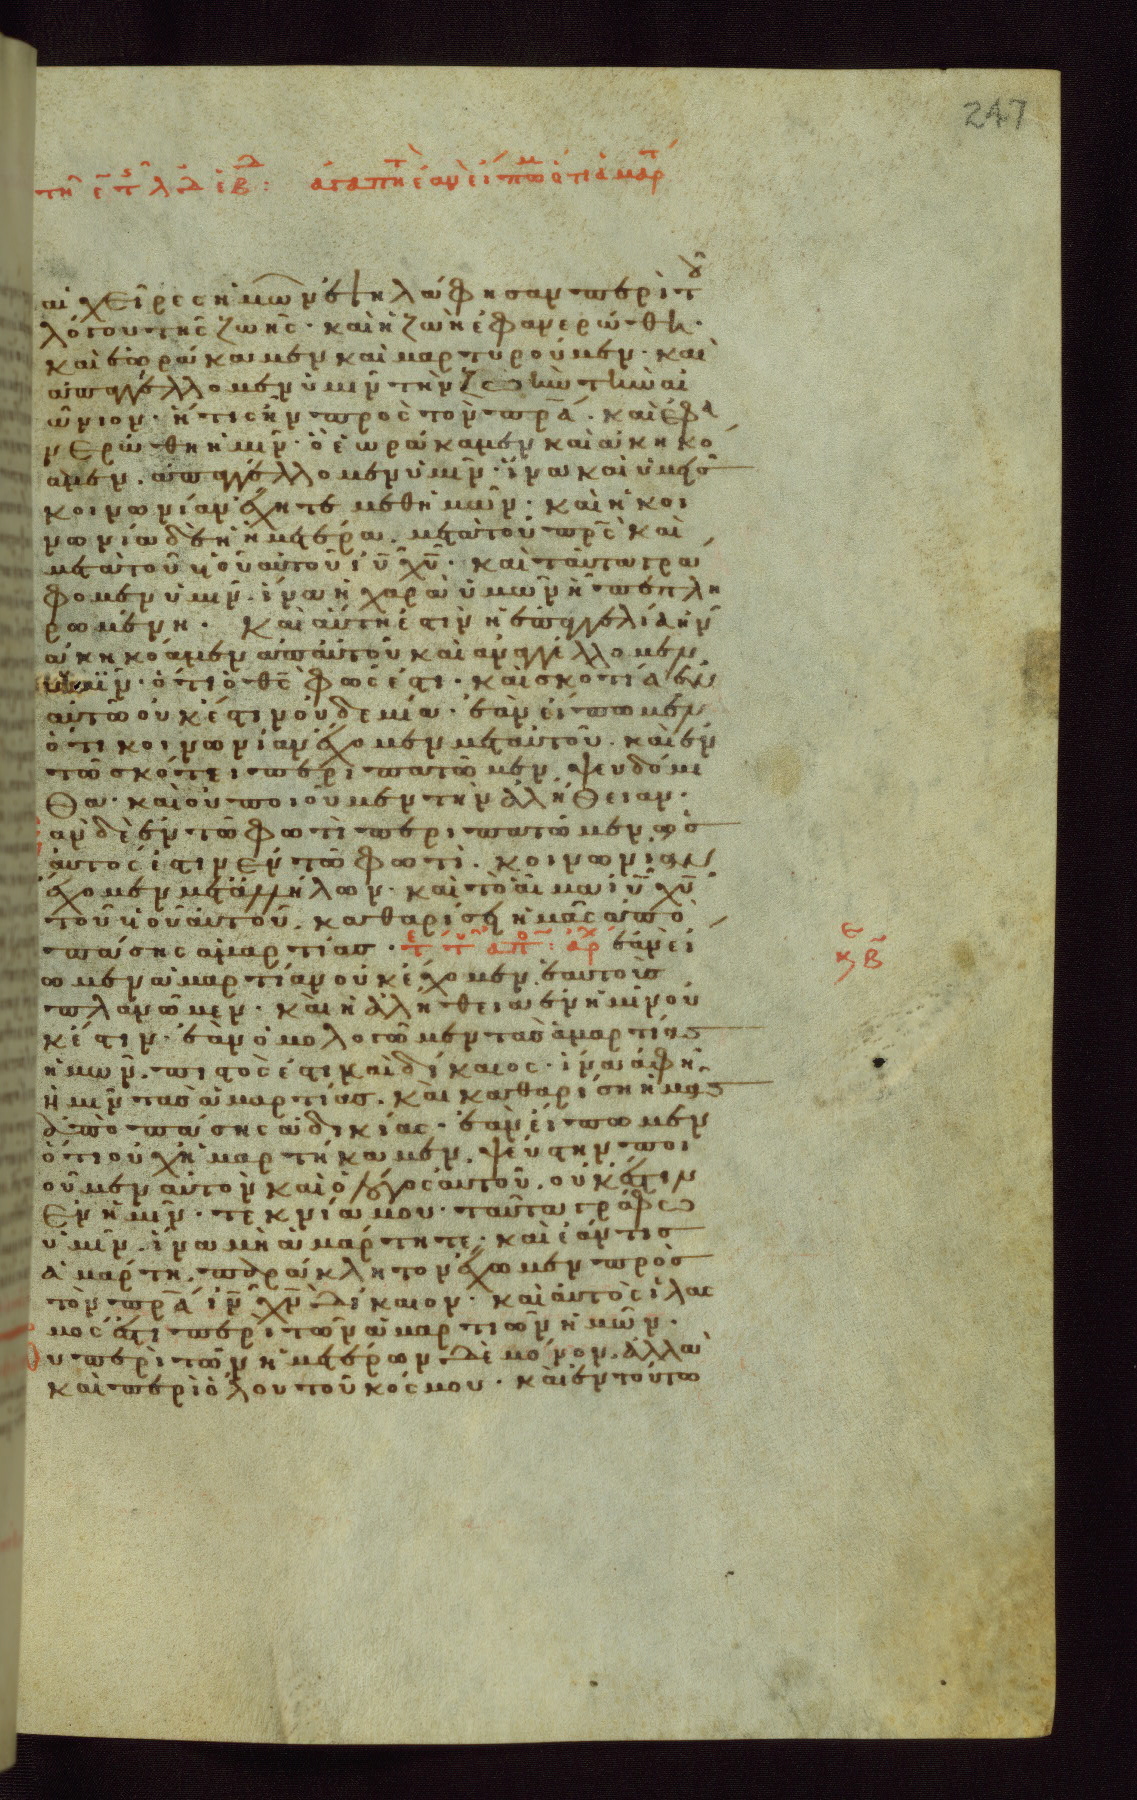 247
αἱ χεῖρες ἡμῶν ἐψηλάφησαν περὶ τοῦ
λόγου τῆς ζωῆς· καὶ ἡ ζωὴ ἐφανερώθη·
καὶ ἑωράκαμεν καὶ μαρτυροῦμεν· καὶ
ἀπαγγέλλομεν ὑμῖν τὴν ζωὴν τὴν αἰ
ώνιον· ἥτις ἦν πρὸς τὸν πρ̅α̅· καὶ ἐφα
νερώθη ἡμῖν· ὃ ἑωράκαμεν καὶ ἀκηκό
αμεν· ἀπαγγέλλομεν ὑμῖν· ἵνα καὶ ὑμεῖς
κοινωνίαν ἔχητε μεθ ἡμῶν· καὶ ἡ κοι
νωνία δὲ ἡ ἡμετέρα· μετὰ τοῦ πρ̅ς̅ καὶ
μετὰ τοῦ υἱοῦ αὐτοῦ ι̅υ̅ χ̅υ̅· καὶ ταῦτα γρά
φομεν ὑμῖν· ἵνα ἡ χαρὰ ὑμῶν ᾖ πεπλη
ρωμένη· Καὶ αὕτη ἐστὶν ἡ ἐπαγγελία ἣν
ἀκηκόαμεν ἀπ αὐτοῦ καὶ ἀναγγέλλομεν
ὑμῖν· ὅτι ὁ θ̅ς̅ φῶς ἐστι· καὶ σκοτία ἐν
αὐτῷ οὐκ ἔστιν οὐδεμία· ἐὰν εἴπωμεν
ὅτι κοινωνίαν ἔχομεν μετ αὐτοῦ· καὶ ἐν
τῷ σκότει περιπατῶμεν, ψευδόμε
θα· καὶ οὐ ποιοῦμεν τὴν ἀλήθειαν·
ἂν δὲ ἐν τῷ φωτὶ περιπατῶμεν ὡς
αὐτός ἐστιν ἐν τῷ φωτί· κοινωνίαν
ἔχομεν μετ ἀλλήλων· καὶ τὸ αἷμα ι̅υ̅ χ̅υ̅
τοῦ υἱοῦ αὐτοῦ· καθαρίσει ἡμᾶς ἀπὸ
πάσης ἁμαρτίας· ἐὰν εἴ
πωμεν ἁμαρτίαν οὐκ ἔχομεν· ἑαυτοὺς
πλανῶμεν· καὶ ἡ ἀλήθεια ἐν ἡμῖν οὐ
κ ἔστιν· ἐὰν ὁμολογῶμεν τὰς ἁμαρτίας
ἡμῶν· πιστός ἐστι καὶ δίκαιος· ἵνα ἀφῇ
ἡμῖν τὰς ἁμαρτίας· καὶ καθαρίσῃ ἡμᾶς
ἀπὸ πάσης ἀδικίας· ἐὰν εἴπωμεν
ὅτι οὐχ ἡμαρτήκαμεν· ψεύστην ποι
οῦμεν αὐτὸν καὶ ὁ λόγος αὐτοῦ· οὐκ ἔστιν
ἐν ἡμῖν· τεκνία μου· ταῦτα γράφω
ὑμῖν· ἵνα μὴ ἁμάρτητε· καὶ ἐάν τις
ἁμάρτῃ· παράκλητον ἔχωμεν πρὸς
τὸν πρ̅α̅ ι̅ν̅ χ̅ν̅ δίκαιον· καὶ αὐτὸς ἱλασ
μός ἐστι περὶ τῶν ἁμαρτιῶν ἡμῶν·
ὐ περὶ τῶν ἡμετέρων δὲ μόνον· ἀλλὰ
καὶ περὶ ὅλου τοῦ κόσμου· καὶ ἐν τούτῳ